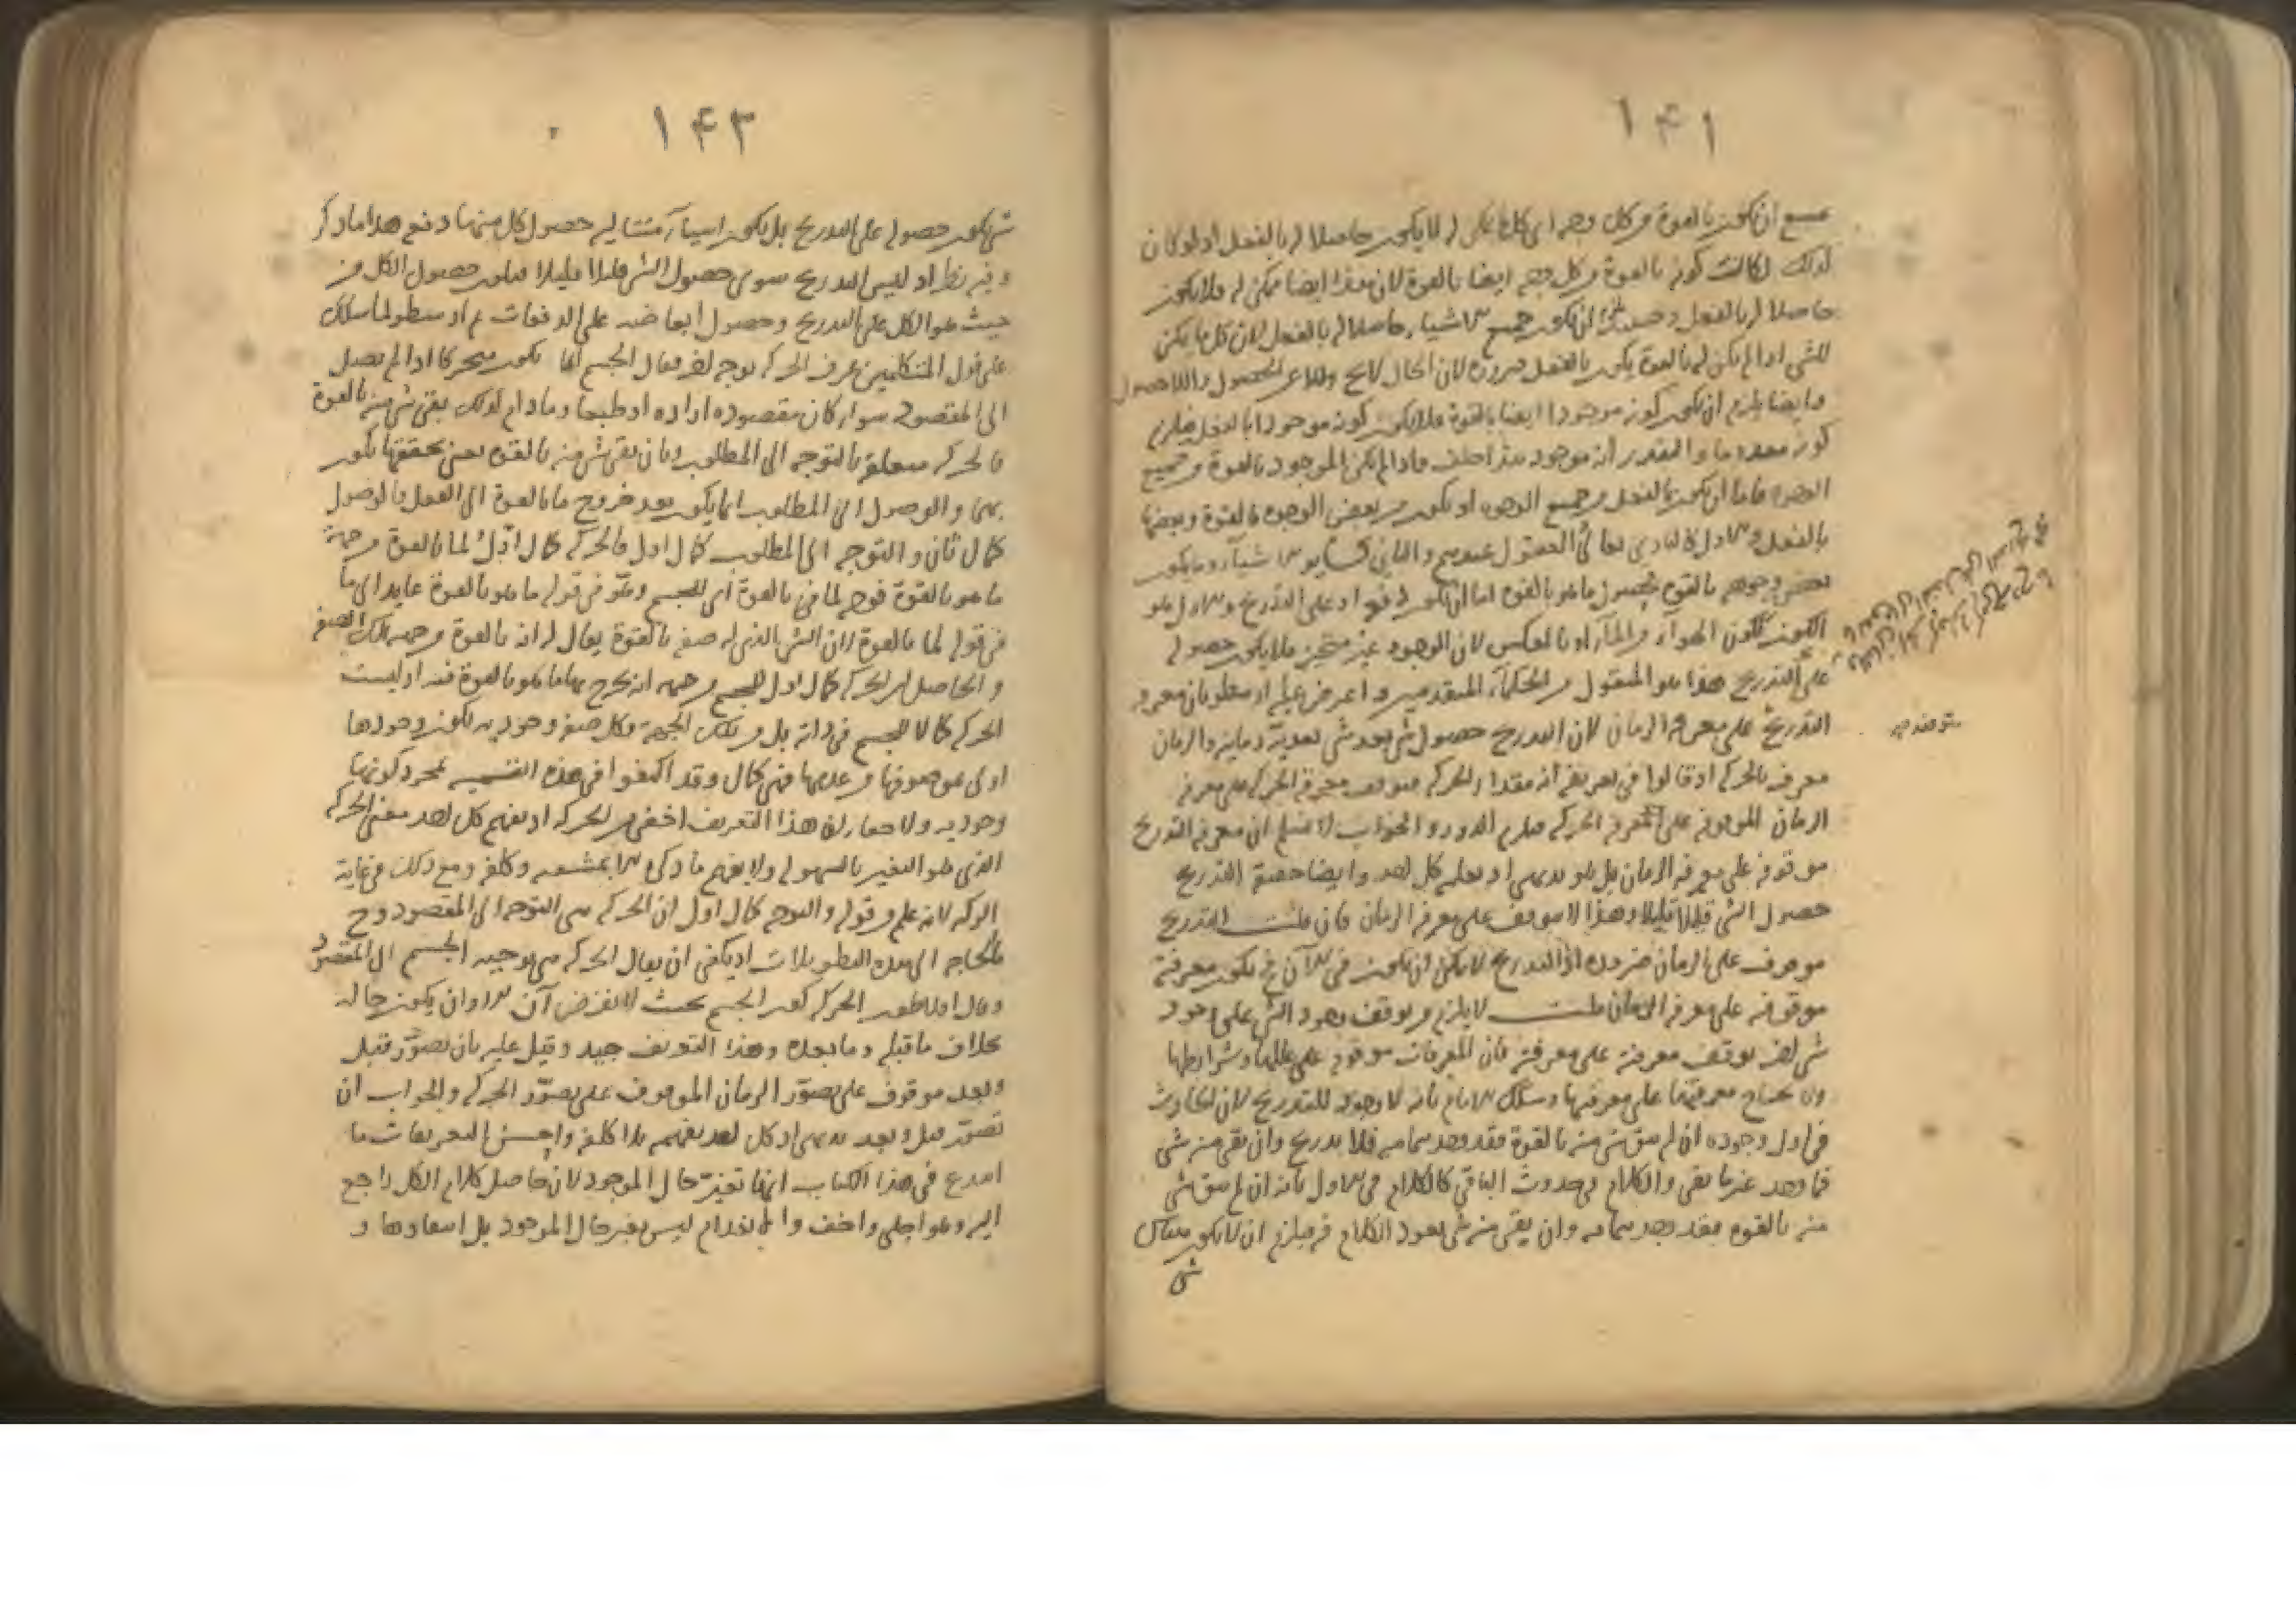 ۱۴۱
يمتنع ان يكون بالقوة من كل وجه اى كل ما يمكن له لا يكون حاصلا له بالفعل اذ لو كان
كذلك لكانت كونه بالقوة من كل وجه ايضا بالقوة لان هذا ايضا ممكن له فلا يكون
حاصلا له بالفعل وحينئذ ان يكون جميع الاشياء حاصلا له بالفعل لان كل ما يمكن
للشى اذا لم يكن له بالقوة يكون بالفعل ضرورة لان الحال لا يخ عن الحصول واللاحصول
وايضا يلزم ان يكون كونه موجودا ايضا بالقوة فلا يكون كونه موجودا بالفعل فيلزم
كونه معدوما والمقدر انه موجود هذا خلف فاذا لم يكن الموجود بالقوة من جميع
الوجوه فاما ان يكون بالفعل من جميع الوجوه او يكون من بعض الوجوه بالقوة وبعضها
بالفعل والاول كالبارى تعالى العقول عندهم والثانى كساير الاشياء وما يكون
بعض وجوهه بالقوة فحصول ما هو بالقوة اما ان يكون دفعة او على التدريج والاول هو
الكون كتكون الهواء من الماء او بالعكس لان الوجود غير متجز فلا يكون حصوله
على التدريج هذا هو المنقول من الحكماء المتقدمين واعترض عليه او معلوم بان معرفة
التدريج على معرفة الزمان لان التدريج حصول شى بعد شى بعدية زمانية والزمان
معرف بالحركة اذ قالوا فى تعريفه انه مقدار الحركة فيتوقف معرفة الحركة على معرفة
الزمان الموقوفة على معرفة الحركة فيلزم الدور والجواب لا نسلم ان معرفة التدريج
موقوفة على معرفة الزمان بل هو بديهى اذ يعلمه كل احد وايضا حقيقة التدريج
حصول الشى قليلا قليلا وهذا لا يتوقف على معرفة الزمان فان قلت التدريج
موقوف على الزمان ضرورة اذ التدريج لا يمكن ان يكون فى الآن فيكون معرفته
موقوفة على معرفة الزمان قلت لا يلزم من توقف وجود الشى على وجود
شى اخر توقف معرفته على معرفته فان المعرفات موقوفة على عللها وشرايطها
ولا يحتاج معرفتها على معرفتها وسلك الامام بانه لا وجود للتدريج لان الحادث
فى اول وجوده ان لم يبق شى منه بالقوة فقد وجد بتمامه فلا تدريج وان بقى منه شى
فما وجد غير ما بقى والكلام فى حدوث الباقى كالكلام فى الاول بانه ان لم يبق شى
منه بالقوة فقد وجد بتمامه وان بقى منه شى يعود الكلام فيه فيلزم ان لا يكون هناك
شى
يتوقف معرفة
۱۴۳
شى يكون حصوله على التدريج بل يكون اشياء متتالية حصول كل منها دفعة هذا ما ذكر
وفيه نظر اذ ليس التدريج سوى حصول الشى قليلا قليلا فيكون حصول الكل من
حيث هو الكل على التدريج وحصول ابعاضه على الدفعات ثم اوسطو لما سلك
على قول المتكلمين عرف الحركة بوجه اخر فقال الجسم انما يكون متحركا اذا لم يصل
الى المقصود سواء كان مقصوده ارادة او طبيعا وما دام كذلك بقى شى منه بالقوة
فالحركة متعلقة بالتوجه الى المطلوب وبان بقى شى منه بالقوة يعنى تحققها يكون
بهما والوصول الى المطلوب انما يكون بعد خروج ما بالقوة الى الفعل والوصول
كمال ثان والتوجه الى المطلوب كمال اول فالحركة كمال اول لما بالقوة من جهة
ما هو بالقوة فوجه لما فى بالقوة اى للجسم وهو فى قوله ما هو بالقوة عايد الى ما
فى قوله لما بالقوة لان الشى الذى له صفة بالقوة يقال له انه بالقوة من جهة تلك الصفة
والحاصل ان الحركة كمال اول للجسم من جهة انه يخرج بها ما هو بالقوة فيه اذ ليست
الحركة كمالا للجسم فى ذاته بل من تلك الجهة وكل صفة وجودية يكون وجودها
اولى بموصوفها من عدمها فهى كمال وقد اكتفوا فى هذه التسمية بمجرد كونها
وجودية ولا خفاء ان هذا التعريف اخفى من الحركة اذ يفهم كل احد معنى الحركة
الذى هو التغير بالسهولة ولا يفهم ما ذكره الا بمشقة وكلفة ومع ذلك فى غاية
الركة لانه علم من قوله والتوجه كمال اول ان الحركة هى التوجه الى المقصود وح
لا حاجة الى هذه التطويلات اذ يكفى ان يقال الحركة هى توجيه الجسم الى المقصود
وقال افلاطون الحركة كون الجسم بحيث لا يفرض آن الا وان يكون حاله
بخلاف ما قبله وما بعده وهذا التعريف جيد وقيل عليه بان تصور قبل
وبعد موقوف على تصور الزمان الموقوف على تصور الحركة والجواب ان
تصور قبل وبعد بديهى اذ كل احد يفهمه بلا كلفة واحسن التعريفات ما
ابدع فى هذا الكتاب انها تغير حال الموجود لان حاصل كلام الكل راجع
اليه وهو اجلى واخف والانعدام ليس بتغير حال الموجود بل